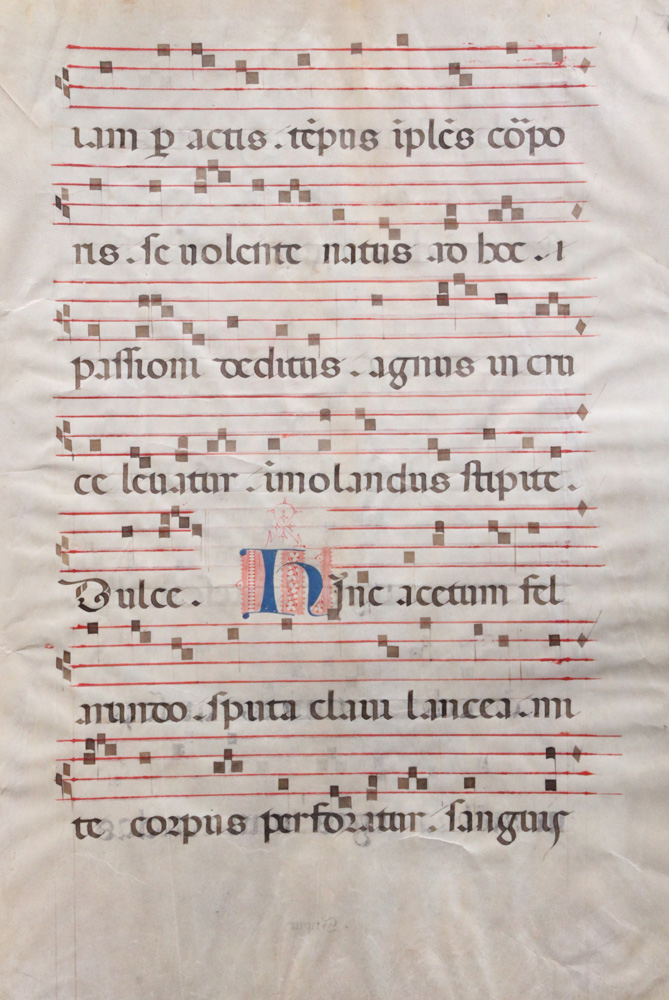 iam p̱ actis . tēpus īplēs cōpo
ris . se uolente natus ad hoc . i
passioni deditus . agnus in cru
ce leuatur . īmolandus stipite .
Dulce . Hinc acetum fel
arundo . sputa claui lancea . mi
te corpus perforatur . sanguis